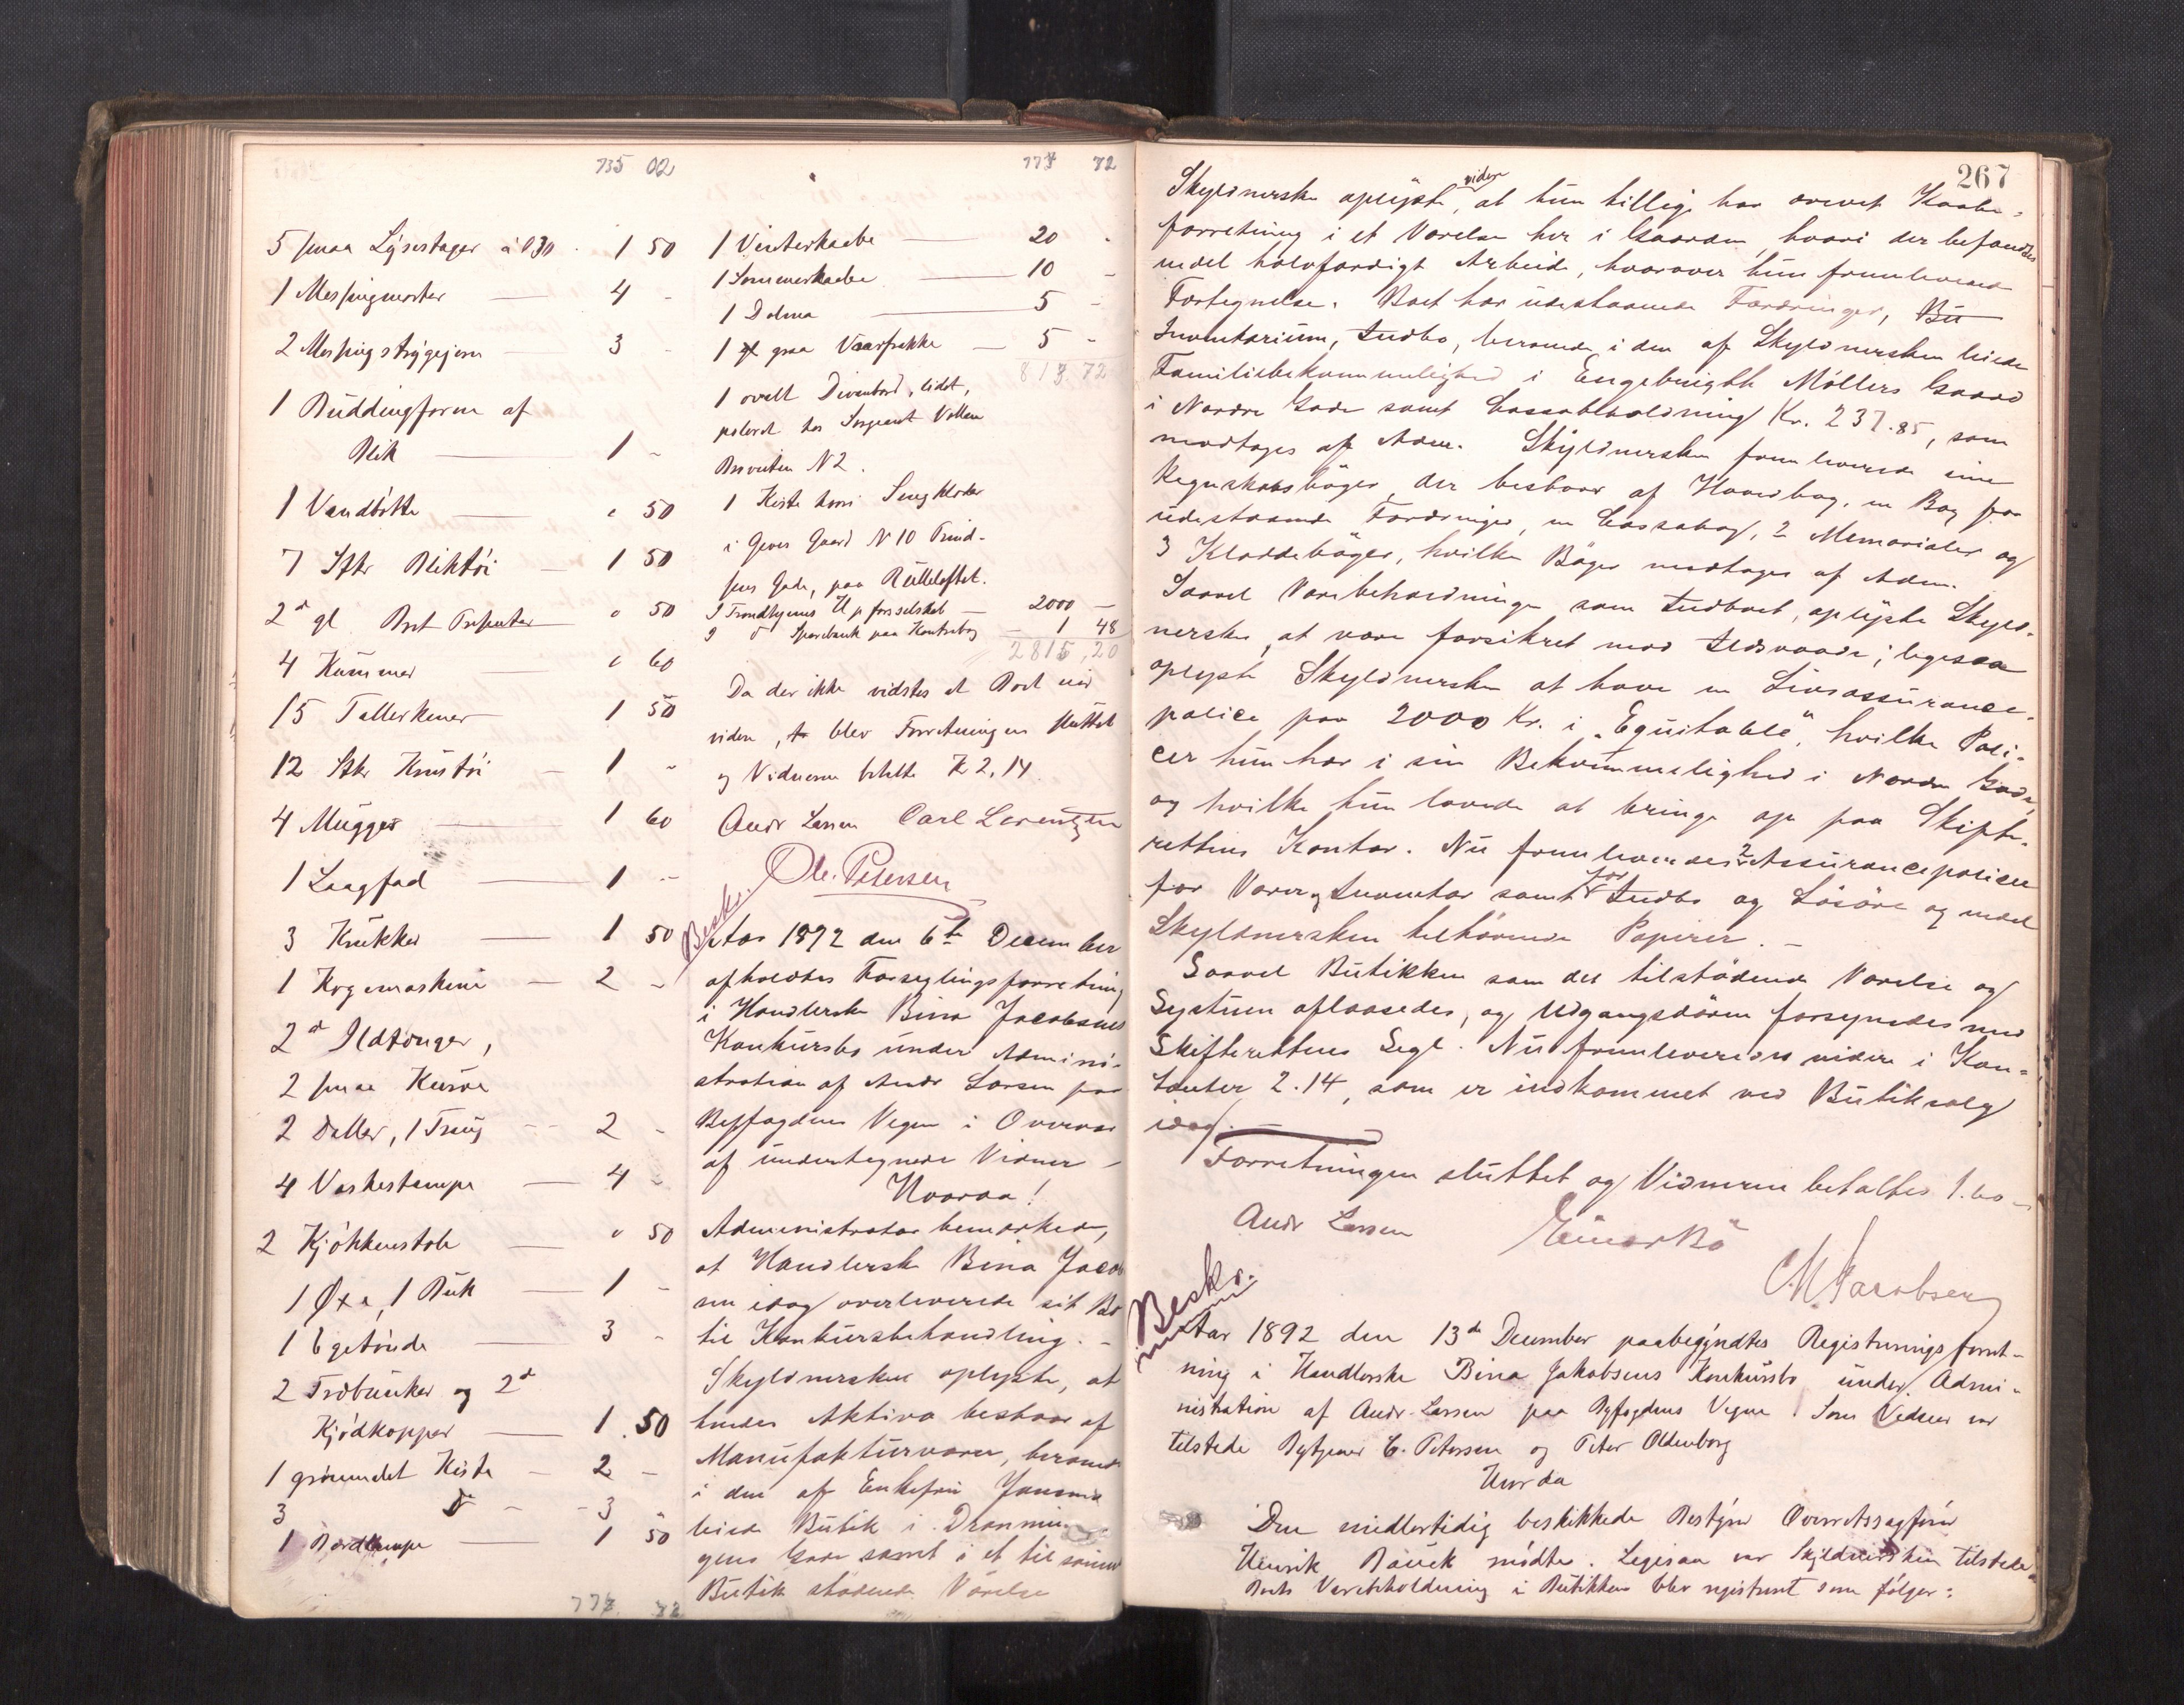 735 02
5 smaa Lysestager à 030 1 50
1 Messingmorter 4 -
2 Messingstrygejern 3 -
1 Buddingform af
Blik 1 -
1 Vandbøtte " 50
7 Stkr Bliktøi 1 50
2 d gl Bret " 50
4 Kummer " 60
15 Tallerkener 1 50
12 Stkr Krustøi 1 -
4 Mugger 1 60
1 Laagfad 1 -
3 Krukker 1 50
1 Kogemaskine 2 -
2 d Ildtænger,
2 smaa Kurve
2 Daller, 1 Traug 2 -
4 Vaskestampe 4 -
2 Kjøkkenstole " 50
1 Øxe, 1 Buk 1 -
1 Egetønde 3 -
2 Træbunker og 2 d
Kjødkopper 1.50
1 grønmalet Kiste 2 -
3 d 3
1 Bordlampe 1 50
777. 72
777 72
1 Vinterkaabe 20 -
1 Sommerkaabe 10 -
1 Dolma 5 -
1 graa Vaarfrakke 5 -
817.72
1 ovalt Divanbord, lidet,
poleret hos Sergeant Vollan
N 2.
1 Kiste hvori Sengklæder
i Gaard N 10 Prind-
sens Gade, paa Rulleloftet.
I Trondhjems 2000 -
I d Sparebank paa Kontrabog 1 48
2815,20
Da der ikke vidstes at Boet eied
videre, blev Forretningen sluttet
og Vidnerne betalte K 2,14.
Andr Larsen Carl Lorentzen
Ole. Petersen
Beskr.
Aar 1892 den 6te December
afholdtes Forseglingsforretning
i Handlerske Bina Jacobsens
Konkursbo under Admini-
stration af Andr Larsen paa
Byfogdens Vegne i Overvær
af undertegnede Vidner -
Hvoraa!
Administrator bemærkede,
at Handlerske Bina Jacob
sen idag overleverede sit Bo
til Konkursbehandling. -
Skyldnersken oplyste, at
hendes Aktiva bestaar af
Manufakturvarer, beroende
i den af Enkefru
leiede Butik i Dronnin-
gens Gade samt i et til samme
Butik stødende Værelse
267
Skyldnerske oplyste videre, at hun tillige har drevet Kaabe-
forretning i et Værelse her i Gaarden, hvori der befandtes
endel halvfærdigt Arbeide, hvorover hun fremleverede
Fortegnelse. Boet har udestaaende Fordringer, Bu
Inventarium, Indbo, beroende i den af Skyldnersken leiede
Familiebekvemmelighed i Engebrigth Möllers Gaard
i Nordre Gade samt Cassabeholdning Kr. 237.85, som
modtoges af Adm. Skyldnersken fremleverede sine
Regnskabsbøger, der bestaar af Hovedbog, en Bog for
udestaaende Fordringer, en Cassabog, 2 Memorialer og
3 Kladdebøger, hvilke Bøger modtoges af Adm.
Saavel Varebeholdningen som Indboet, oplyste Skyld-
nersken, at være forsikret mod Ildsvaade; ligesaa
oplyste Skyldnersken at have en Livsassurance-
police paa 2000 Kr. i "Equitable", hvilke Poli-
cer hun har i sin Bekvemmelighed i Nordre Gade,
og hvilke hun lovede at bringe op paa Skifte-
rettens Kontor. Nu fremleveredes 2 Assurancepolicer
for Varer og Inventar samt for Indbo og Løsøre og endel
Skyldnersken tilhørende Papirer. -
Saavel Butikken som det tilstødende Værelse og
Systuen aflaasedes, og Udgangsdøren forsynedes med
Skifterettens Segl. Nu fremleveredes videre i Kon-
tanter 2.14, som er indkommet ved Butiksalg
idag. -
Forretningen sluttet og Vidnerne betaltes 1.60 -
Andr Larsen Einar Bö
C. M. Jacobsen
Beskr.
Aar 1892 den 13de December paabegyndtes Registreringsforret-
ning i Handlerske Bina Jakobsens Konkursbo under Admi-
nistration af Andr. Larsen paa Byfogdens Vegne. Som Vidner var
tilstede Bytjener C. Petersen og Peter Oldenborg
Hvorda
Den midlertidig beskikkede Bestyrer Overretssagfører
Henrik Bauck mødte. Ligesaa var Skyldnersken tilstede
Boets Varebeholdning i Butikken blev registreret som følger: